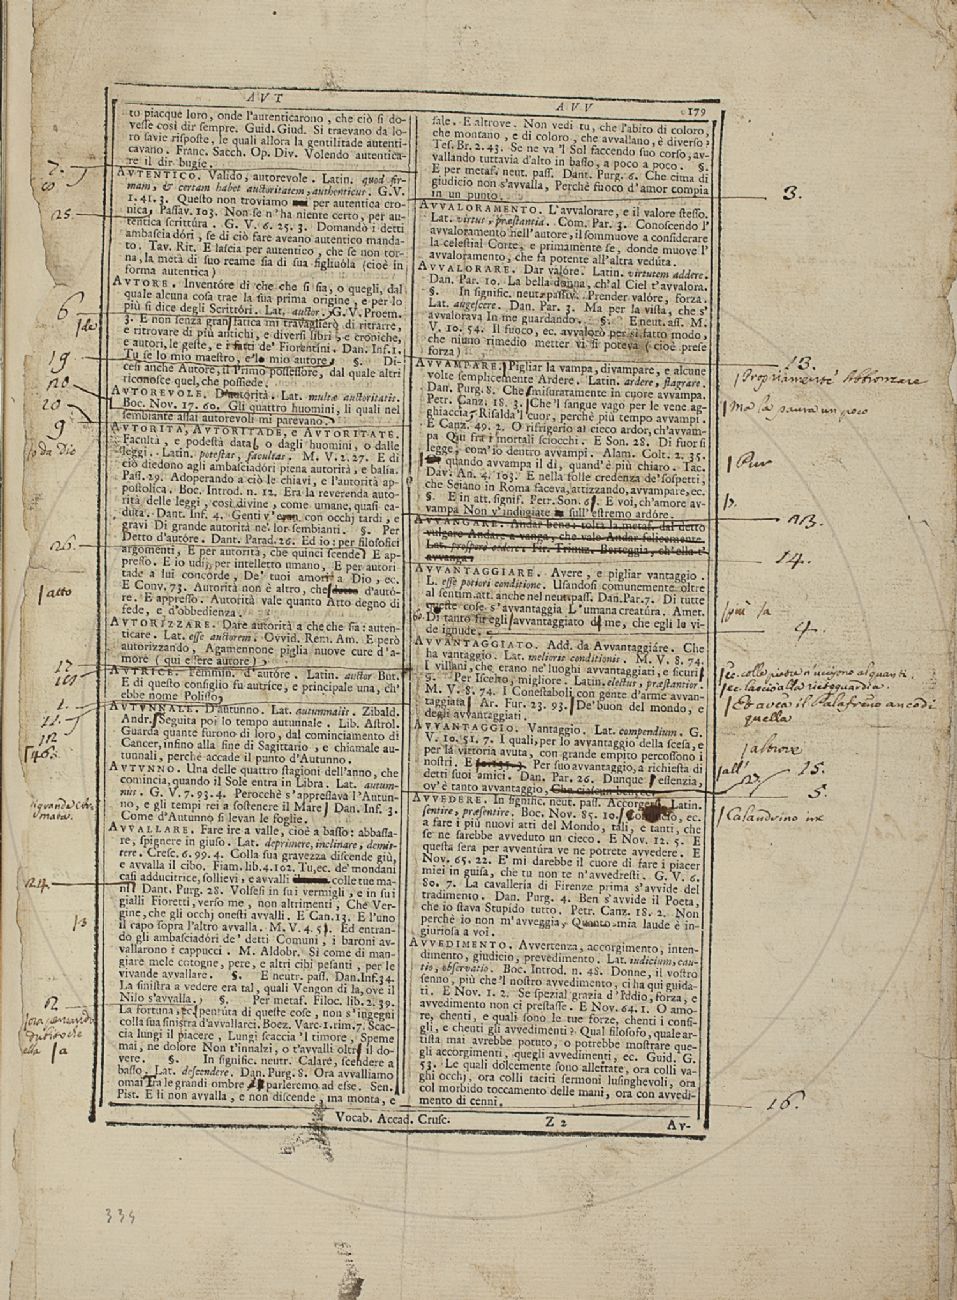 AVT
AVV
179
to piacque loro, onde l'autenticarono, che ciò si do-
vesse così dir sempre. Guid. Giud. Si traevano da lo-
ro savie risposte, le quali allora la gentilitade autenti-
cavano. Franc. Sacch. Op. Div. Volendo autentica-
re il dir bugie.
AVTENTICO. Valido, autorevole. Latin. quod fir-
mam, & certam habet auctoritatem, authenticus. G. V.
1. 41. 3. Questo non troviamo per autentica cro-
nica, Passav. 103. Non se n'ha niente certo, per au-
tentica scrittúra. G. V. 6. 25. 3. Domandò i detti
ambasciadóri, se di ciò fare aveano autentico manda-
to. Tav. Rit. E lascia per autentico, che se non tor-
na, la metà di suo reame sia di sua figliuóla (cioè in
forma autentica)
AVTORE. Inventóre di che che si sia, o quegli, dal
quale alcuna cosa trae la sua prima origine, e per lo
più si dice degli Scrittóri. Lat. auctor. G. V. Proem.
3. E non senza gran fatica mi travaglierò di ritrarre,
e ritrovare di più antichi, e diversi libri, e croniche,
e autori, le geste, e i fatti de' Fiorentini. Dan. Inf. 1.
Tu se lo mio maestro, e'l mio autore. §. Di-
cesi anche Autore, il Primo possessore, dal quale altri
riconosce quel, che possiede.
AUTOREVOLE. D'autorità. Lat. multæ auctoritatis.
Boc. Nov. 17. 60. Gli quattro huomini, li quali nel
sembiante assai autorevoli mi parevano.
AVTORITA, AVTORITADE, e AVTORITATE.
Facultà, e podestà data, o dagli huomini, o dalle
leggi. Latin. potestas, facultas. M. V. 2. 27. E di
ciò diedono agli ambasciadóri piena autorità, e balía.
Pass. 29. Adoperando a ciò le chiavi, e l'autorità ap-
postolica. Boc. Introd. n. 12. Era la reverenda auto-
rità delle leggi, così divine, come umane, quasi ca-
duta. Dant. Inf. 4. Genti v' con occhj tardi, e
gravi Di grande autorità ne' lor sembianti. §. Per
Detto d'autóre. Dant. Parad. 26. Ed io: per filosofici
argomenti, E per autorità, che quinci scende) E ap-
presso. E io udij, per intelletto umano, E per autori
tade a lui concorde, De' tuoi amori a Dio, ec.
E Conv. 73. Autorità non è altro, che d'autó-
re. E appresso. Autorità vale quanto Atto degno di
fede, e d'obbedienza.
AVTORIZZARE. Dare autorità a che che sia: auten-
ticare. Lat. esse auctorem. Ovvid. Rem. Am. E però
autorizzando, Agamennone piglia nuove cure d'a-
more (qui essere autore)
AVTRICE. Femmin. d'autóre. Latin. auctor But.
E di questo consiglio fu autrice, e principale una, ch'
ebbe nome Polisso.
AVTVNNALE. D'autunno. Lat. autumnalis. Zibald.
Andr. Seguita poi lo tempo autunnale. Lib. Astrol.
Guarda quante furono di loro, dal cominciamento di
Cancer, infino alla fine di Sagittario, e chiamale au-
tunnali, perchè accade il punto d'Autunno.
AVTVNNO. Una delle quattro stagioni dell'anno, che
comincia, quando il Sole entra in Libra. Lat. autum-
nus. G. V. 7. 93. 4. Perocchè s'appressava l'Autun-
no, e gli tempi rei a sostenere il Mare Dan. Inf. 3.
Come d'Autunno si levan le foglie.
AVVALLARE. Fare ire a valle, cioè a basso: abbassa-
re, spignere in giuso. Lat. deprimere, inclinare, demit-
tere. Cresc. 6. 99. 4. Colla sua gravezza discende giù,
e avvalla il cibo. Fiam. lib. 4. 162. Tu, ec. de' mondani
casi adducitrice, sollievi, e avvalli colle tue ma-
ni Dant. Purg. 28. Volsesi in su i vermigli, e in su i
gialli Fioretti, verso me, non altrimenti, Che Ver-
gine, che gli occhj onesti avvalli. E Can. 13. E l'uno
il capo sopra l'altro avvalla. M. V. 4. 51. Ed entran-
do gli ambasciadóri de' detti Comuni, i baroni av-
vallarono i cappucci. M. Aldobr. Sì come di man-
giare mele cotogne, pere, e altri cibi pesanti, per le
vivande avvallare. §. E neutr. pass. Dan. Inf. 34.
La sinistra a vedere era tal, quali Vengon di là, ove il
Nilo s'avvalla. §. Per metaf. Filoc. lib. 2. 39.
La fortuna, ec. pentúta di queste cose, non s'ingegni
colla sua sinistra d'avvallarci. Boez. Varc. 1. rim. 7. Scac-
cia lungi il piacere, Lungi scaccia 'l timore, Speme
mai, ne dolore Non t'innalzi, o t'avvalli oltr il do-
vere. §. In signific. neutr. Calare, scendere a
basso. Lat. descendere. Dan. Purg. 8. Ora avvalliamo
omai Tra le grandi ombre, parleremo ad esse. Sen.
Pist. E li non avvalla, e non discende, ma monta, e
sale. E altrove. Non vedi tu, che l'abito di coloro,
che montano, e di coloro, che avvallano, è diverso?
Tes. Br. 2. 43. Se ne va 'l Sol faccendo suo corso, av-
vallando tuttavia d'alto in basso, a poco a poco. §.
E per metaf. neut. pass. Dant. Purg. 6. Che cima di
giudicio non s'avvalla, Perchè fuoco d'amor compia
in un punto.
AVVALORAMENTO. L'avvalorare, e il valore stesso.
Lat. virtus, præstantia. Com. Par. 3. Conoscendo l'
avvaloramento nell'autore, il sommuove a considerare
la celestial Corte, e primamente se, donde muove l'
avvaloramento, che fa potente all'altra veduta.
AVVALORARE. Dar valóre. Latin. virtutem addere.
Dan. Par. 10. La bella donna, ch'al Ciel t'avvalora.
§. In signific. neut. passiv. Prender valóre, forza.
Lat. augescere. Dan. Par. 3. Ma per la vista, che s'
avvalorava In me guardando. §. E neut. ass. M.
V. 10. 54. Il fuoco, ec. avvalorò per sì fatto modo,
che niuno rimedio metter vi si poteva (cioè prese
forza)
AVVAMPARE. Pigliar la vampa, divampare, e alcune
volte semplicemente Ardere. Latin. ardere, flagrare.
Dan. Purg. 8. Che smisuratamente in cuore avvampa.
Petr. Canz. 18. 3. Che 'l sangue vago per le vene ag-
ghiaccia, Risalda 'l cuor, perchè più tempo avvampi.
E Canz. 49. 2. O rifrigerio al cieco ardor, ch'avvam-
pa Qui fra i mortali sciocchi. E Son. 28. Di fuor si
legge, com' io dentro avvampi. Alam. Colt. 2. 35.
quando avvampa il dì, quand'è più chiaro. Tac.
Dav. An. 4. 103. E nella folle credenza de' sospetti,
che Seiano in Roma faceva, attizzando, avvampare, ec.
§. E in att. signif. Petr. Son. 6. E voi, ch'amore av-
vampa Non v'indugiate sull'estremo ardóre.
AVVANGARE. Andar bene: tolta la metaf. dal detto
vulgare Andare a vanga, che valo Andar felicemente.
Lat. prospere cedere. Fir. Trinuz. Berteggia, ch'ella t'
avvanga.
AVVANTAGGIARE. Avere, e pigliar vantaggio.
L. esse potiori conditione. Usandosi comunemente oltre
al sentim. att. anche nel neut. pass. Dan. Par. 7. Di tutte
queste cose s'avvantaggia L'umana creatúra. Amet.
Di tanto fu egli avvantaggiato da me, che egli lo vi-
de ignude.
AVVANTAGGIATO. Add. da Avvantaggiáre. Che
ha vantaggio. Lat. melioris conditionis. M. V. 8. 74.
I villani, che erano ne' luoghi avvantaggiati, e sicuri
§. Per Iscelto, migliore. Latin. electus, præstantior.
M. V. 8. 74. I Conestaboli con gente d'arme avvan-
taggiata Ar. Fur. 23. 93. De' buon del mondo, e
degli avvantaggiati.
AVVANTAGGIO. Vantaggio. Lat. compendium. G.
V. 10. 51. 7. I quali, per lo avvantaggio della scesa, e
per la vittoria avuta, con grande empito percossono i
nostri. E Per suo avvantaggio, a richiesta di
detti suoi amici. Dan. Par. 26. Dunque essenzia,
ov' è tanto avvantaggio, Che ciascun ben, ec.
AVVEDERE. In signific. neut. pass. Accorgersi. Latin.
sentire, præsentire. Boc. Nov. 85. 10. ec.
a fare i più nuovi atti del Mondo, tali, e tanti, che
se ne sarebbe avveduto un cieco. E Nov. 12. 5. E
questa sera per avventúra ve ne potrete avvedere. E
Nov. 65. 22. E' mi darebbe il cuore di fare i piacer
miei in guisa, che tu non te n'avvedresti. G. V. 6.
80. 7. La cavallería di Firenze prima s'avvide del
tradimento. Dan. Purg. 4. Ben s'avvide il Poeta,
che io stava Stupido tutto. Petr. Canz. 18. 2. Non
perchè io non m'avveggia, Quanto mia laude è in-
giuriosa a voi.
AVVEDIMENTO. Avvertenza, accorgimento, inten-
dimento, giudicio, prevedimento. Lat. iudicium, cau-
tio, observatio. Boc. Introd. n. 48. Donne, il vostro
senno, più che 'l nostro avvedimento, ci ha qui guida-
ti. E Nov. 1. 2. Se spezial grazia d'Iddio, forza, e
avvedimento non ci prestasse. E Nov. 64. 1. O amo-
re, chenti, e quali sono le tue forze, chenti i consi-
gli, e chenti gli avvedimenti? Qual filosofo, quale ar-
tista mai avrebbe potuto, o potrebbe mostrare que-
gli accorgimenti, quegli avvedimenti, ec. Guid. G.
53. Le quali dolcemente sono allettate, ora colli va-
ghi occhj, ora colli taciti sermoni lusinghevoli, ora
col morbido toccamento delle mani, ora con avvedi-
mento di cenni.
Vocab. Accad. Crusc.
Z 2
AV-
25.
6
19
20
20
9
26.
atto
17
1.
11.
24
2
3.
13.
Propriamente Abbronzare
Ma la paura un poco
Pur
23.
14.
4.
ec. lasciò alla retroguardia.
Et avea il Palafreno anco di
quella
altrove
all'
27
15.
5.
Calandrino ec
16.
334